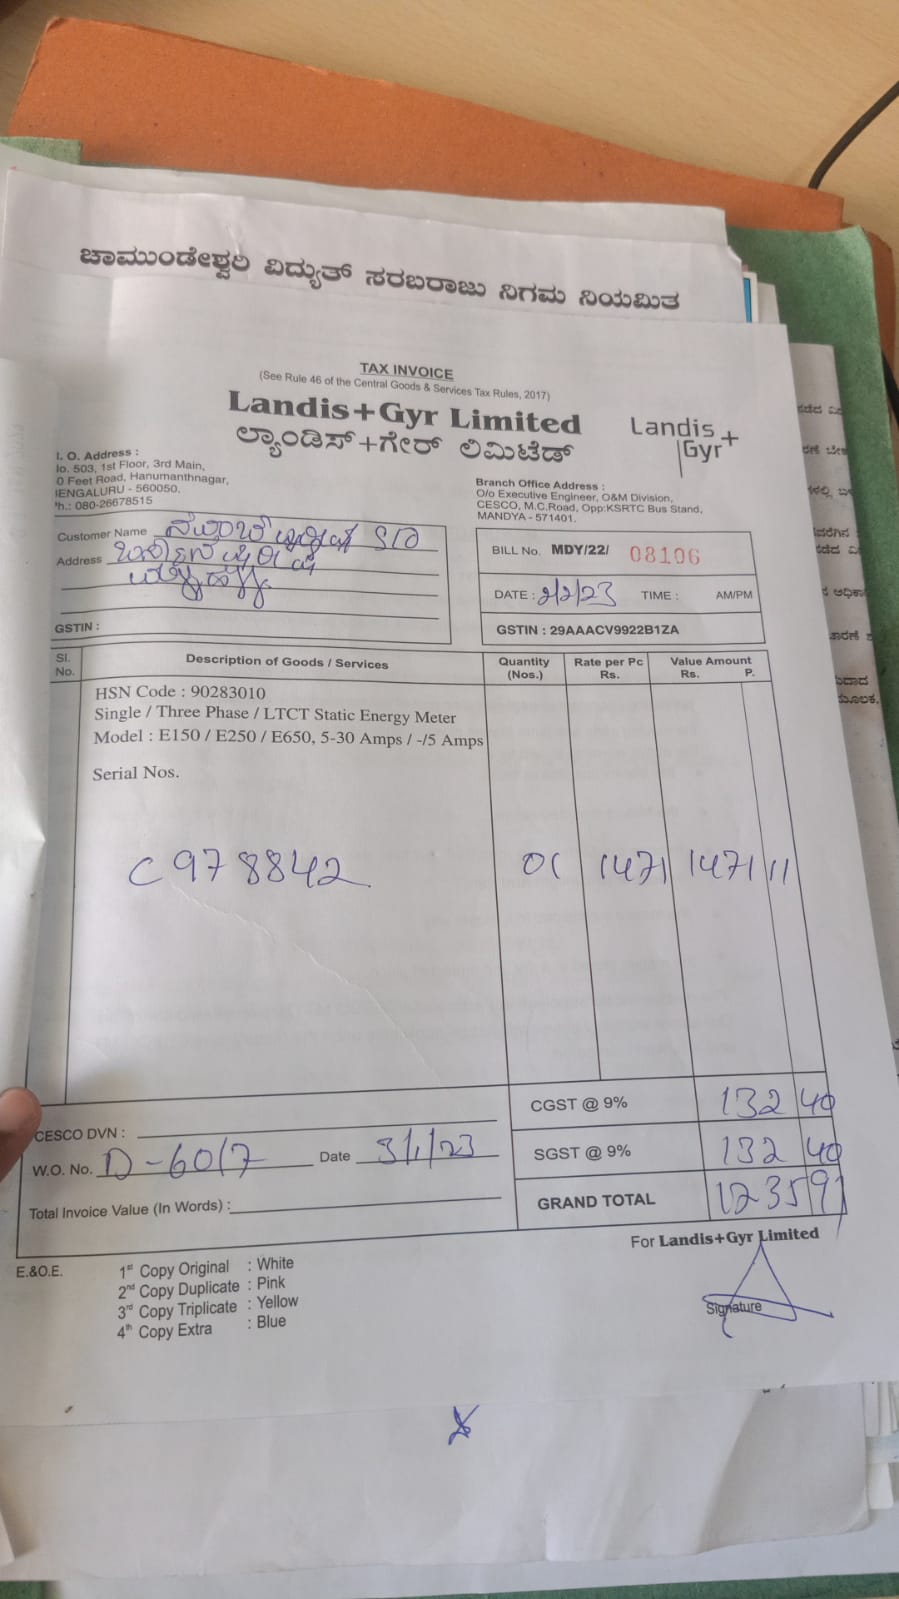 ಚಾಮುಂಡೇಶ್ವರಿ ವಿದ್ಯುತ್ ಸರಬರಾಜು ನಿಗಮ ನಿಯಮಿತ
TAX INVOICE
(See Rule 46 of the Central Goods & Services Tax Rules, 2017)
Landis+Gyr Limited
ಲ್ಯಾಂಡಿಸ್+ಗೇರ್ ಲಿಮಿಟೆಡ್
Landis+
Gyr
I. O. Address :
lo. 503, 1st Floor, 3rd Main,
0 Feet Road, Hanumanthnagar,
ENGALURU - 560050.
h.: 080-26678515
Branch Office Address :
O/o Executive Engineer, O&M Division,
CESCO, M.C.Road, Opp:KSRTC Bus Stand,
MANDYA - 571401.
Customer Name
Address
GSTIN :
BILL No. MDY/22/ 08106
DATE : 2/2/23 TIME : AM/PM
GSTIN : 29AAACV9922B1ZA
Sl. No. Description of Goods / Services Quantity (Nos.) Rate per Pc Rs. Value Amount Rs. P.
HSN Code : 90283010
Single / Three Phase / LTCT Static Energy Meter
Model : E150 / E250 / E650, 5-30 Amps / -/5 Amps
Serial Nos.
C978842 01 1471 1471 11
CGST @ 9% 132 40
CESCO DVN :
SGST @ 9% 132 40
W.O. No. D-6017 Date 3/1/23
GRAND TOTAL 1235 91
Total Invoice Value (In Words) :
For Landis+Gyr Limited
Signature
E.&O.E.
1st Copy Original : White
2nd Copy Duplicate : Pink
3rd Copy Triplicate : Yellow
4th Copy Extra : Blue